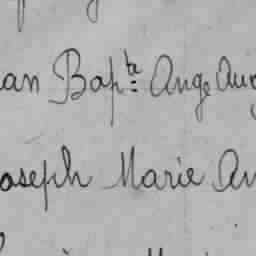 an Bapte Ange Au
oseph Marie An